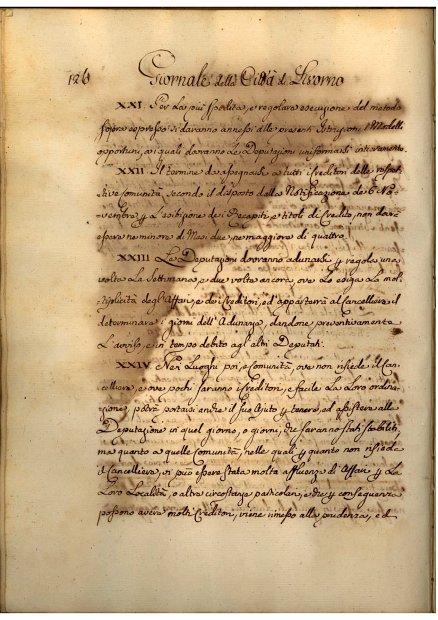 126 Giornale della Città di Livorno
XXI. Per La più spedita, e regolare esecuzione del metodo
sopra espresso si daranno annessi alle presenti Istruzioni i Modelli
opportuni, ai quali dovranno Le Deputazioni uniformarsi interamente.
XXII. Il termine da assegnarsi a tutti i Creditori delle rispet-
tive Comunità, secondo il disposto dalla Notificazione de 6 No-
vembre p. L'esibizione dei Recapiti, e titoli di Credito, non dovrà
essere nè minore di Mesi due, nè maggiore di quattro.
XXIII. Le Deputazioni dovranno adunarsi p. regola una
volta La Settimana, e due volte ancora, ove Lo esiga La mol-
tiplicità degl'Affari, e dei Creditori, ed apparterrà al Cancelliere il
determinare i giorni dell'Adunanza, dandone preventivamente
L'avviso, e in tempo debito agl'altri Deputati.
XXIV. Nei Luoghi poi, e Comunità, ove non risiede il Can-
celliere, e ove pochi saranno i Creditori, e facile La Loro ordina-
zione, potrà portarsi anche il suo Ajuto p. tenere, ed assistere alle
Deputazione in quel giorno, o giorni, che saranno stati stabiliti,
ma quanto a quelle Comunità, nelle quali p. quanto non risieda
il Cancelliere, vi può essere stata molta affluenza di Affari p. La
Loro Località, o altra circostanza particolare, e che p. conseguenza
possono avere molti Creditori, viene rimesso alla prudenza, ed